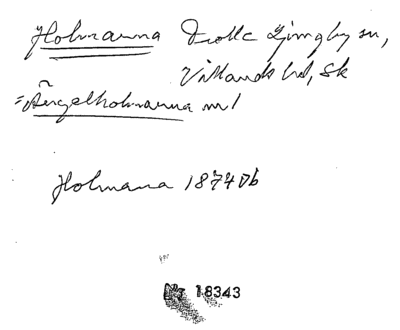 Holmarna Trolle Ljungby sn,
Villands hd, Sk
=Ängelholmarna m 1
Holmana 1874 Db
No 18343